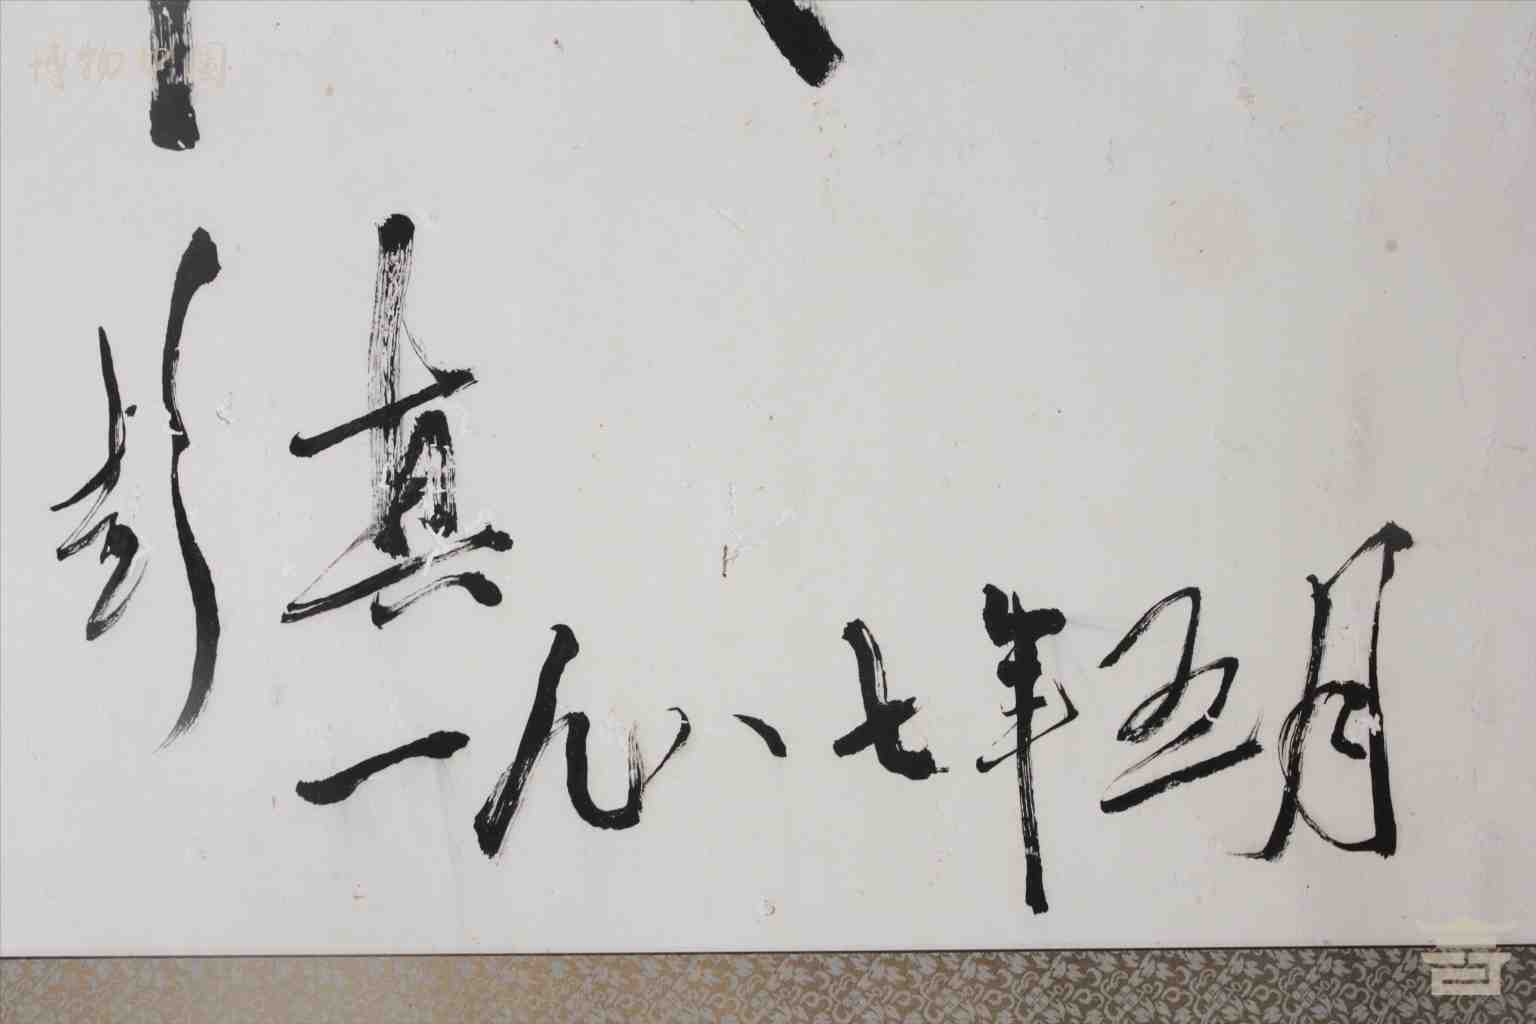 博物中国
彭真
一九八七年五月